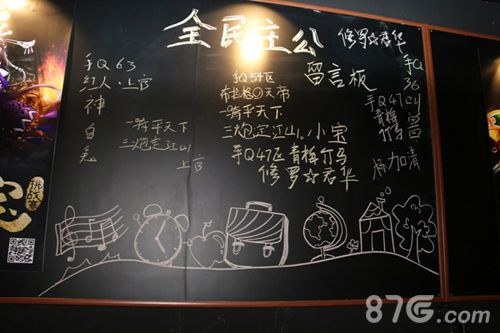 全民主公
修罗☆君华
手Q63
红人·上官
神
白
兔
一骑平天下
三炮定江山
上官
手Q54区
布拉格の天帝
一骑平天下
三炮定江山·小宝
手Q47区 青梅竹马
修罗☆君华
留言板
手Q
36
手Q47区
青梅
竹马
加清
87G.com